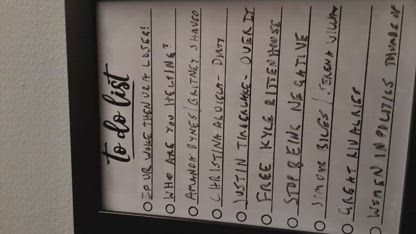 to do list
IF UR WOKE THEN UR A LOSER!
WHO ARE YOU HELPING?
AMANDA BYNES/BRITNEY SHAVED
CHRISTINA AGUILERA - DIRTY
JUSTIN TIMBERLAKE - OVER IT
FREE KYLE RITTENHOUSE
STOP BEING NEGATIVE
SIMONE BILES / SERENA WILLIAMS
GREAT RIVALRIES
WOMEN IN POLITICS